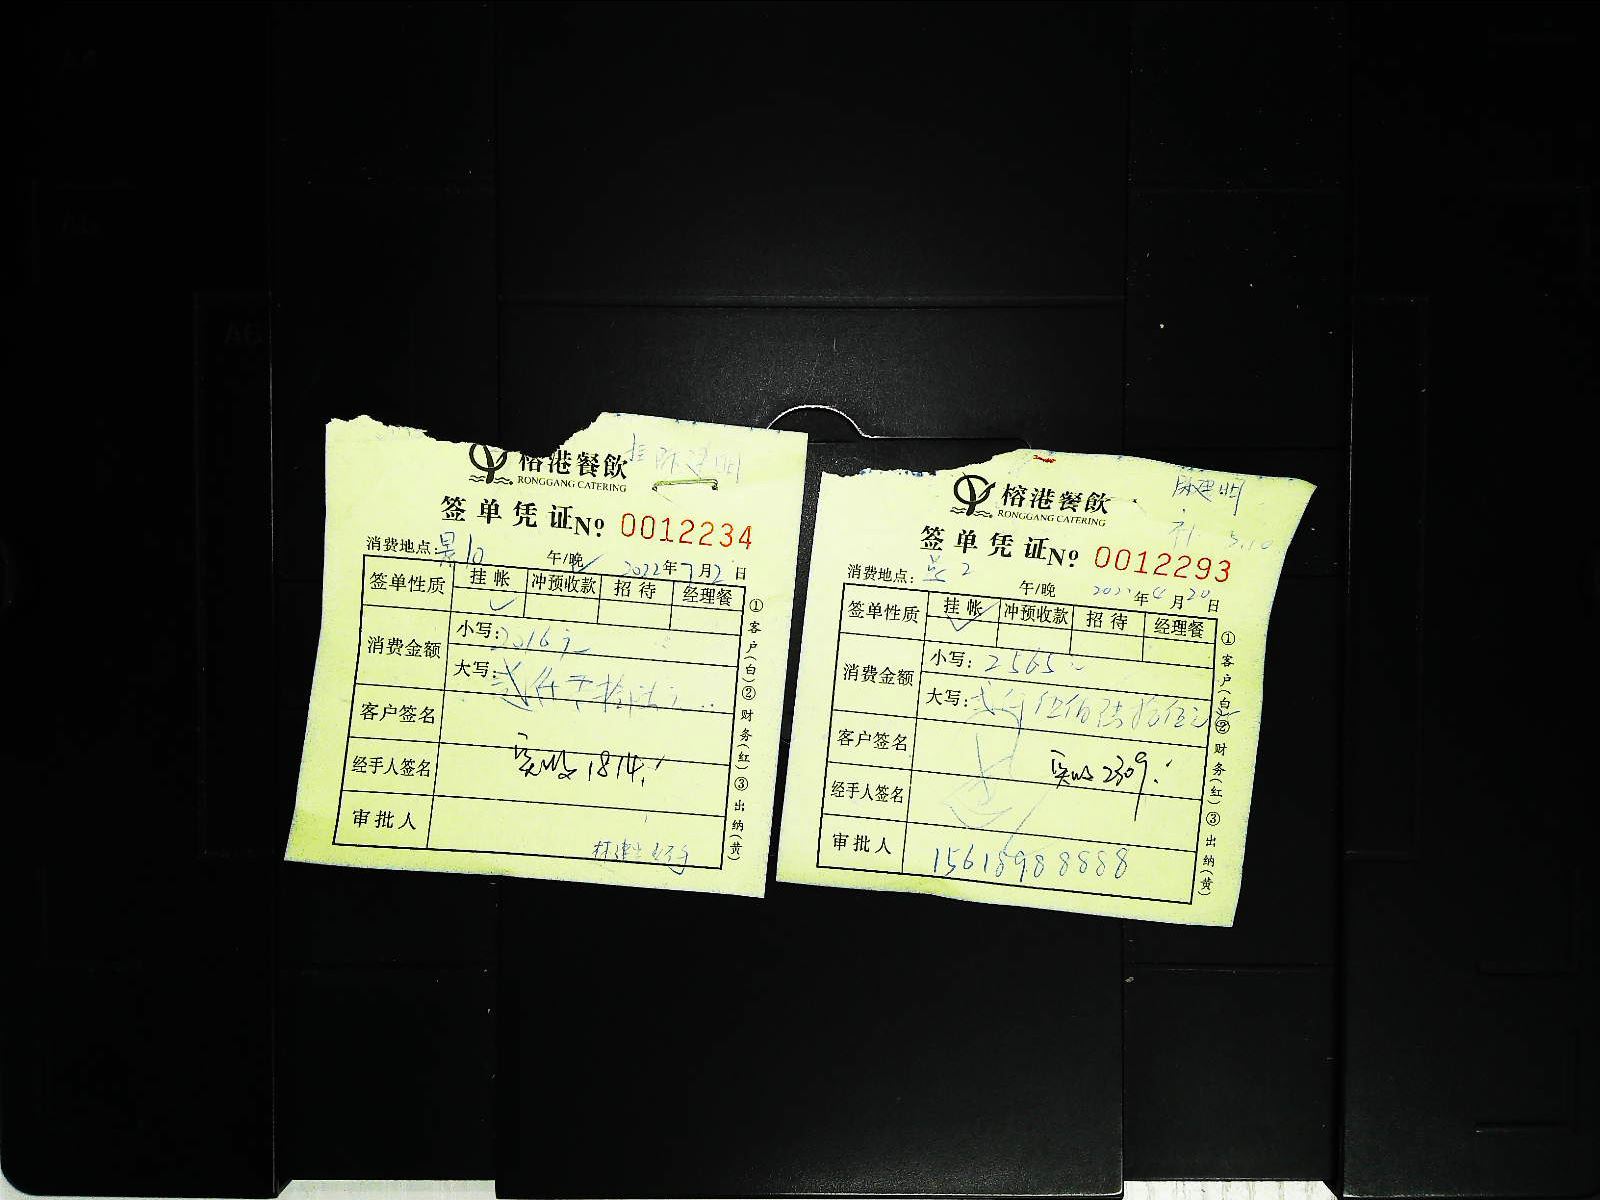 榕港餐飲
RONGGANG CATERING
签单凭证 Nº 0012234
消费地点: 10 午/晚 2022年7月2日
签单性质 挂帐 冲预收款 招待 经理餐
消费金额 小写: 2016
大写: 贰仟
客户签名
经手人签名 实收 1814
审批人
①客户(白)②财务(红)③出纳(黄)
陈建明
榕港餐飲
RONGGANG CATERING
签单凭证 Nº 0012293
消费地点: 2 午/晚 年4月20日
签单性质 挂帐 冲预收款 招待 经理餐
消费金额 小写: 2565
大写: 贰仟伍佰陆拾伍元
客户签名
经手人签名 实收 2309
审批人 15618988888
①客户(白)②财务(红)③出纳(黄)